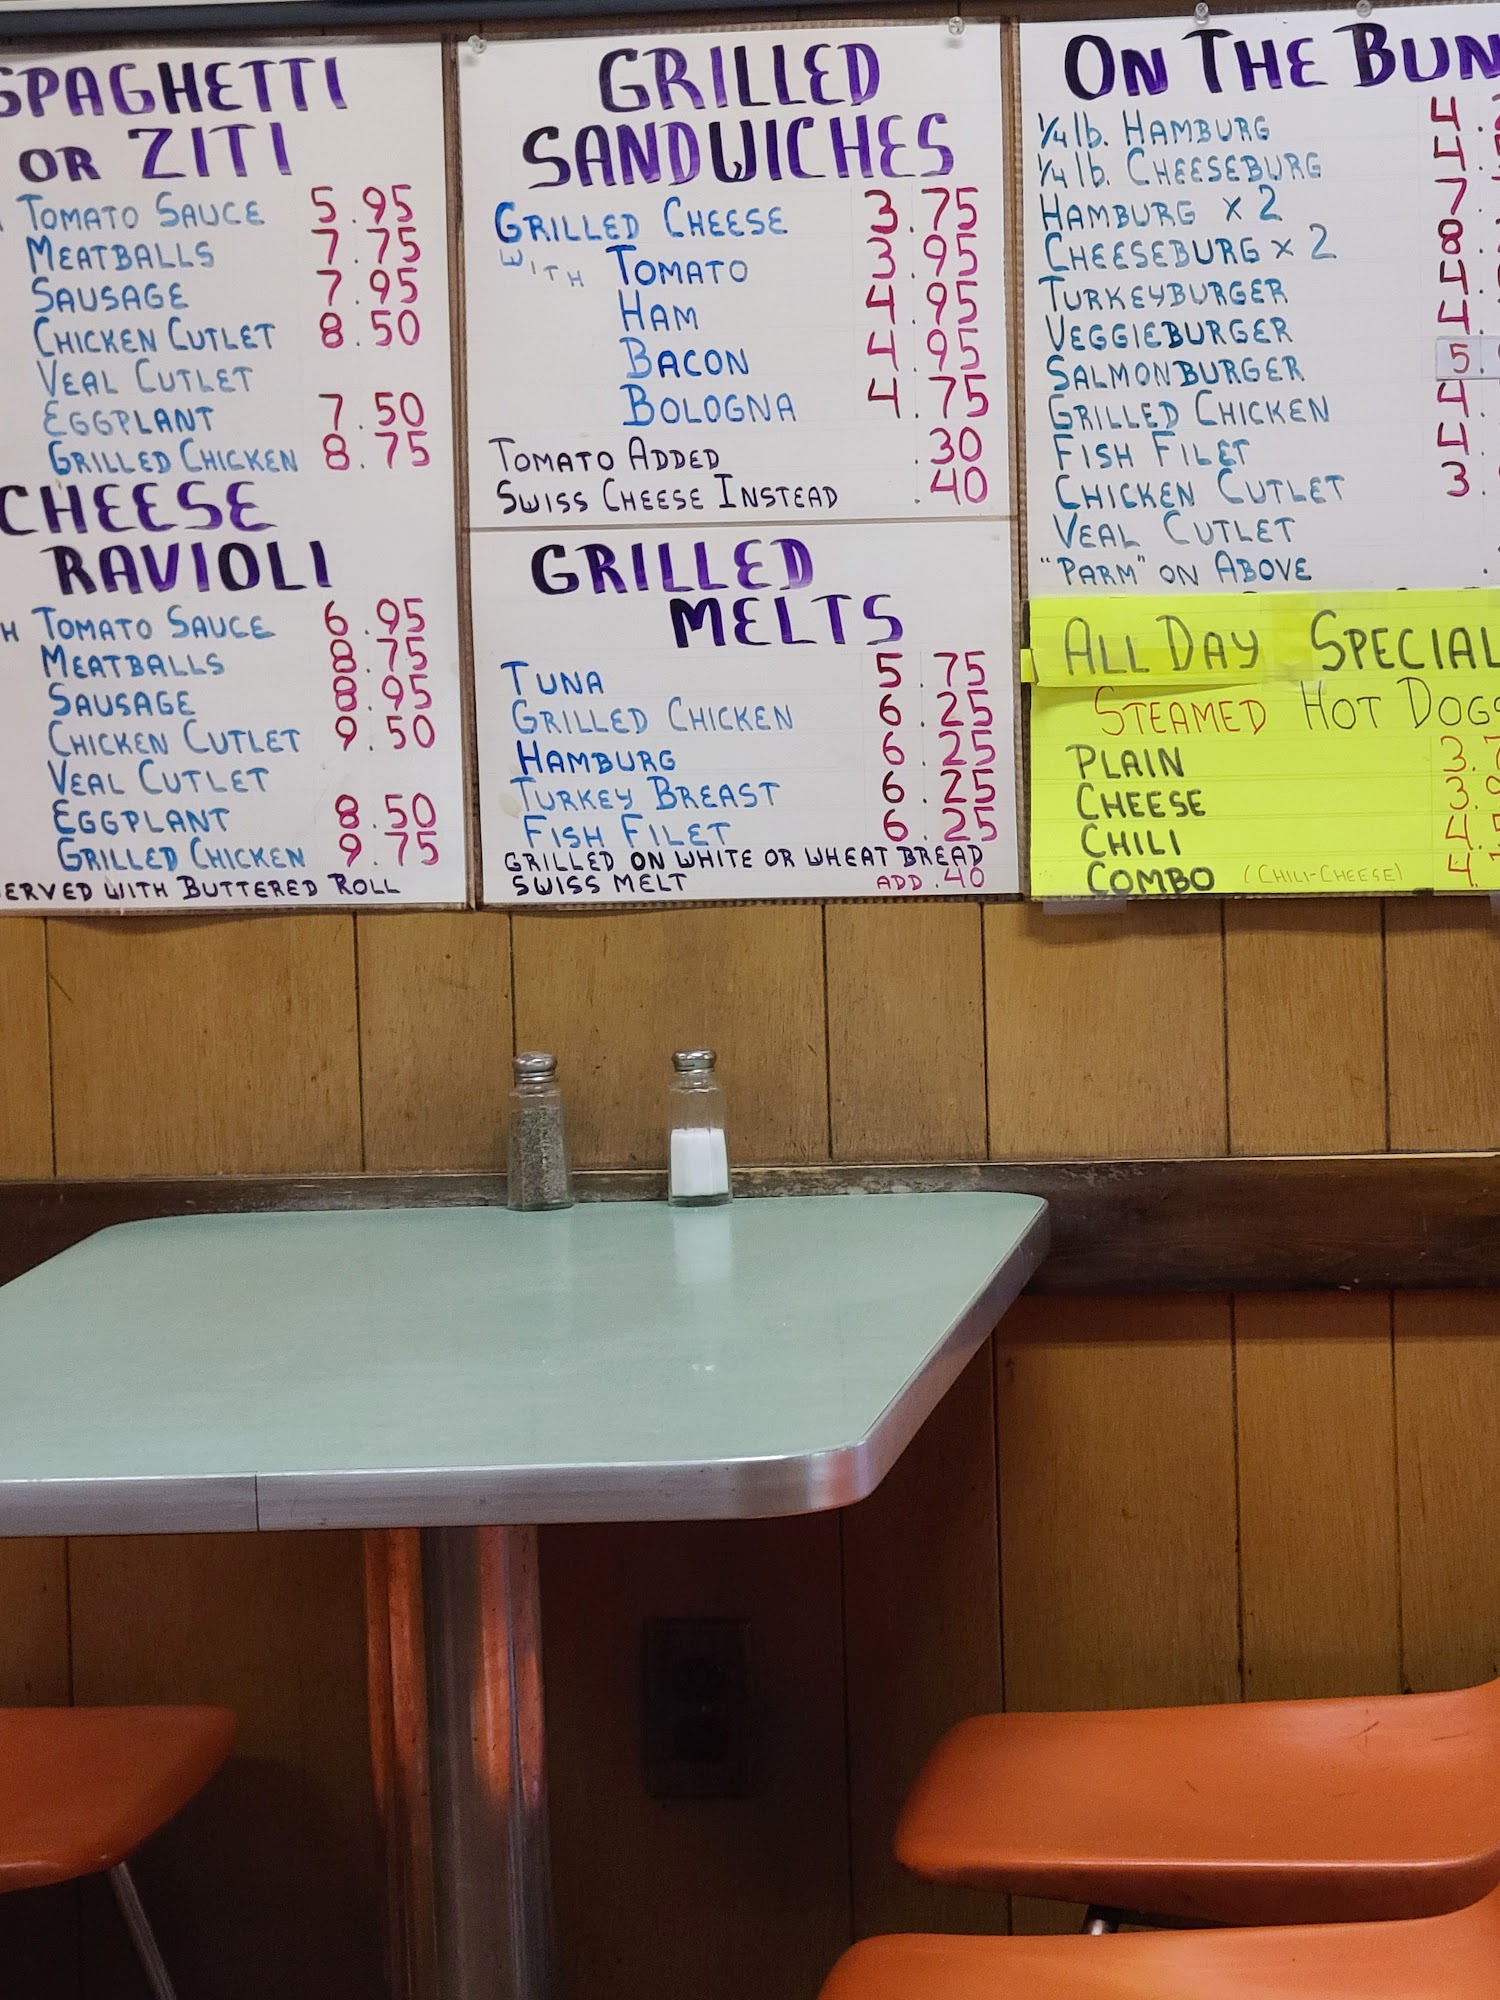 SPAGHETTI
OR ZITI
TOMATO SAUCE 5.95
MEATBALLS 7.75
SAUSAGE 7.95
CHICKEN CUTLET 8.50
VEAL CUTLET
EGGPLANT 7.50
GRILLED CHICKEN 8.75
CHEESE
RAVIOLI
H TOMATO SAUCE 6.95
MEATBALLS 8.75
SAUSAGE 8.95
CHICKEN CUTLET 9.50
VEAL CUTLET
EGGPLANT 8.50
GRILLED CHICKEN 9.75
ERVED WITH BUTTERED ROLL
GRILLED
SANDWICHES
GRILLED CHEESE 3.75
WITH TOMATO 3.95
HAM 4.95
BACON 4.95
BOLOGNA 4.75
TOMATO ADDED .30
SWISS CHEESE INSTEAD .40
GRILLED
MELTS
TUNA 5.75
GRILLED CHICKEN 6.25
HAMBURG 6.25
TURKEY BREAST 6.25
FISH FILET 6.25
GRILLED ON WHITE OR WHEAT BREAD
SWISS MELT ADD .40
ON THE BUN
1/4 lb. HAMBURG 4.
1/4 lb. CHEESEBURG 4.
HAMBURG x 2 7.
CHEESEBURG x 2 8.
TURKEYBURGER 4.
VEGGIEBURGER 4.
SALMONBURGER 5.
GRILLED CHICKEN 4.
FISH FILET 4.
CHICKEN CUTLET 3.
VEAL CUTLET
"PARM" ON ABOVE .
ALL DAY SPECIAL
STEAMED HOT DOGS
PLAIN 3.7
CHEESE 3.9
CHILI 4.5
COMBO (CHILI-CHEESE) 4.7